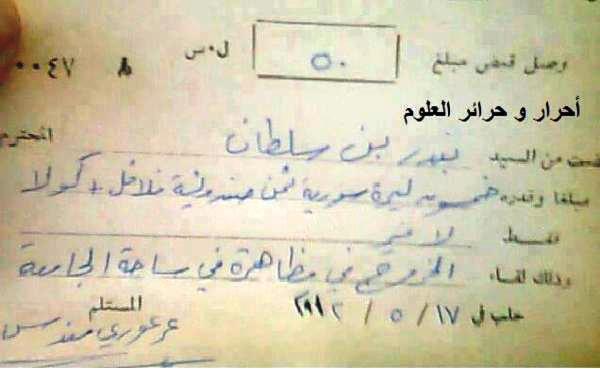 وصل قبض مبلغ ٥٠ ل.س ٠٠٤٧
أحرار و حرائر العلوم
قبضت من السيد بندر بن سلطان المحترم
مبلغا وقدره خمسون ليرة سورية ثمن صندويشة فلافل + كولا
فقط لا غير
وذلك لقاء الخروج في مظاهرة في ساحة الجامعة
حلب في ١٧ / ٥ / ٢٠١٢ المستلم
عرعوري مندس